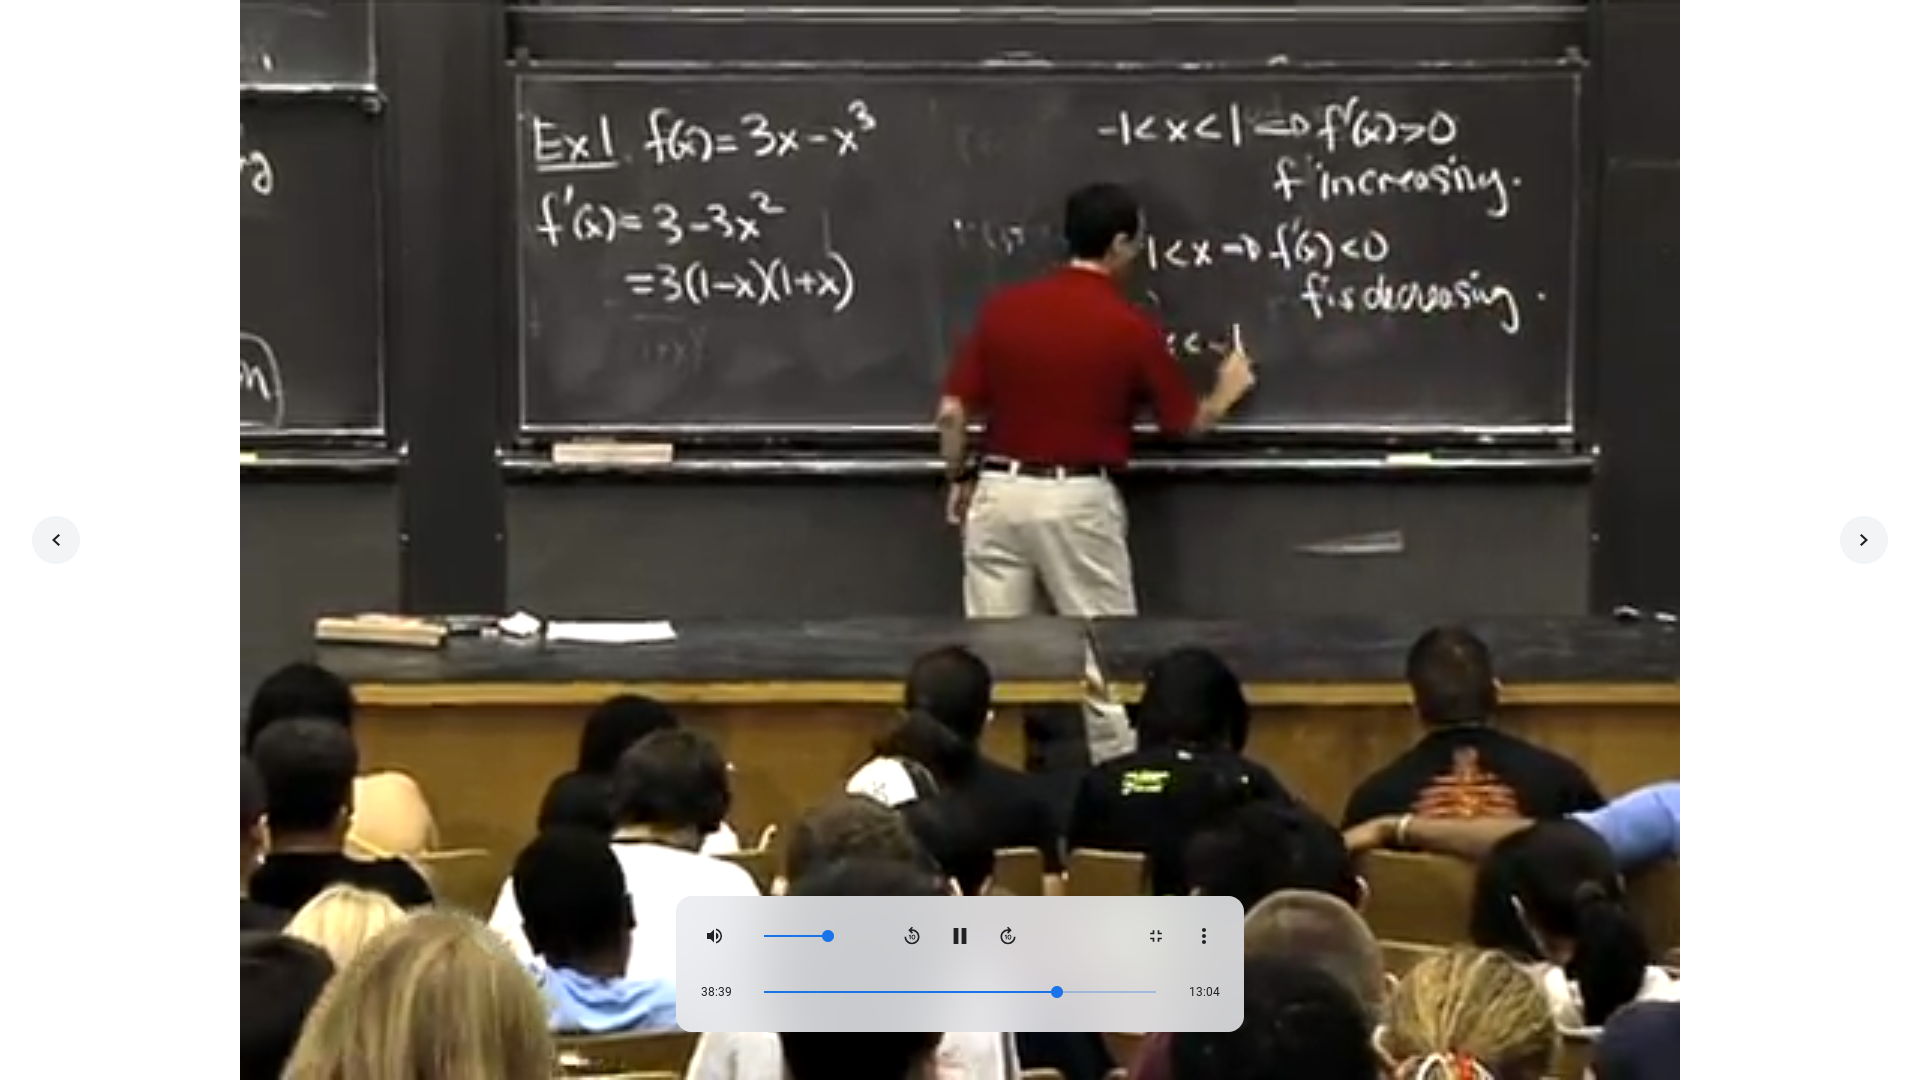 Ex1 f(x)=3x-x³
f'(x)=3-3x²
=3(1-x)(1+x)
-1<x<1 ⇒ f'(x)>0
f increasing.
1<x ⇒ f'(x)<0
f is decreasing.
<-1
38:39
13:04